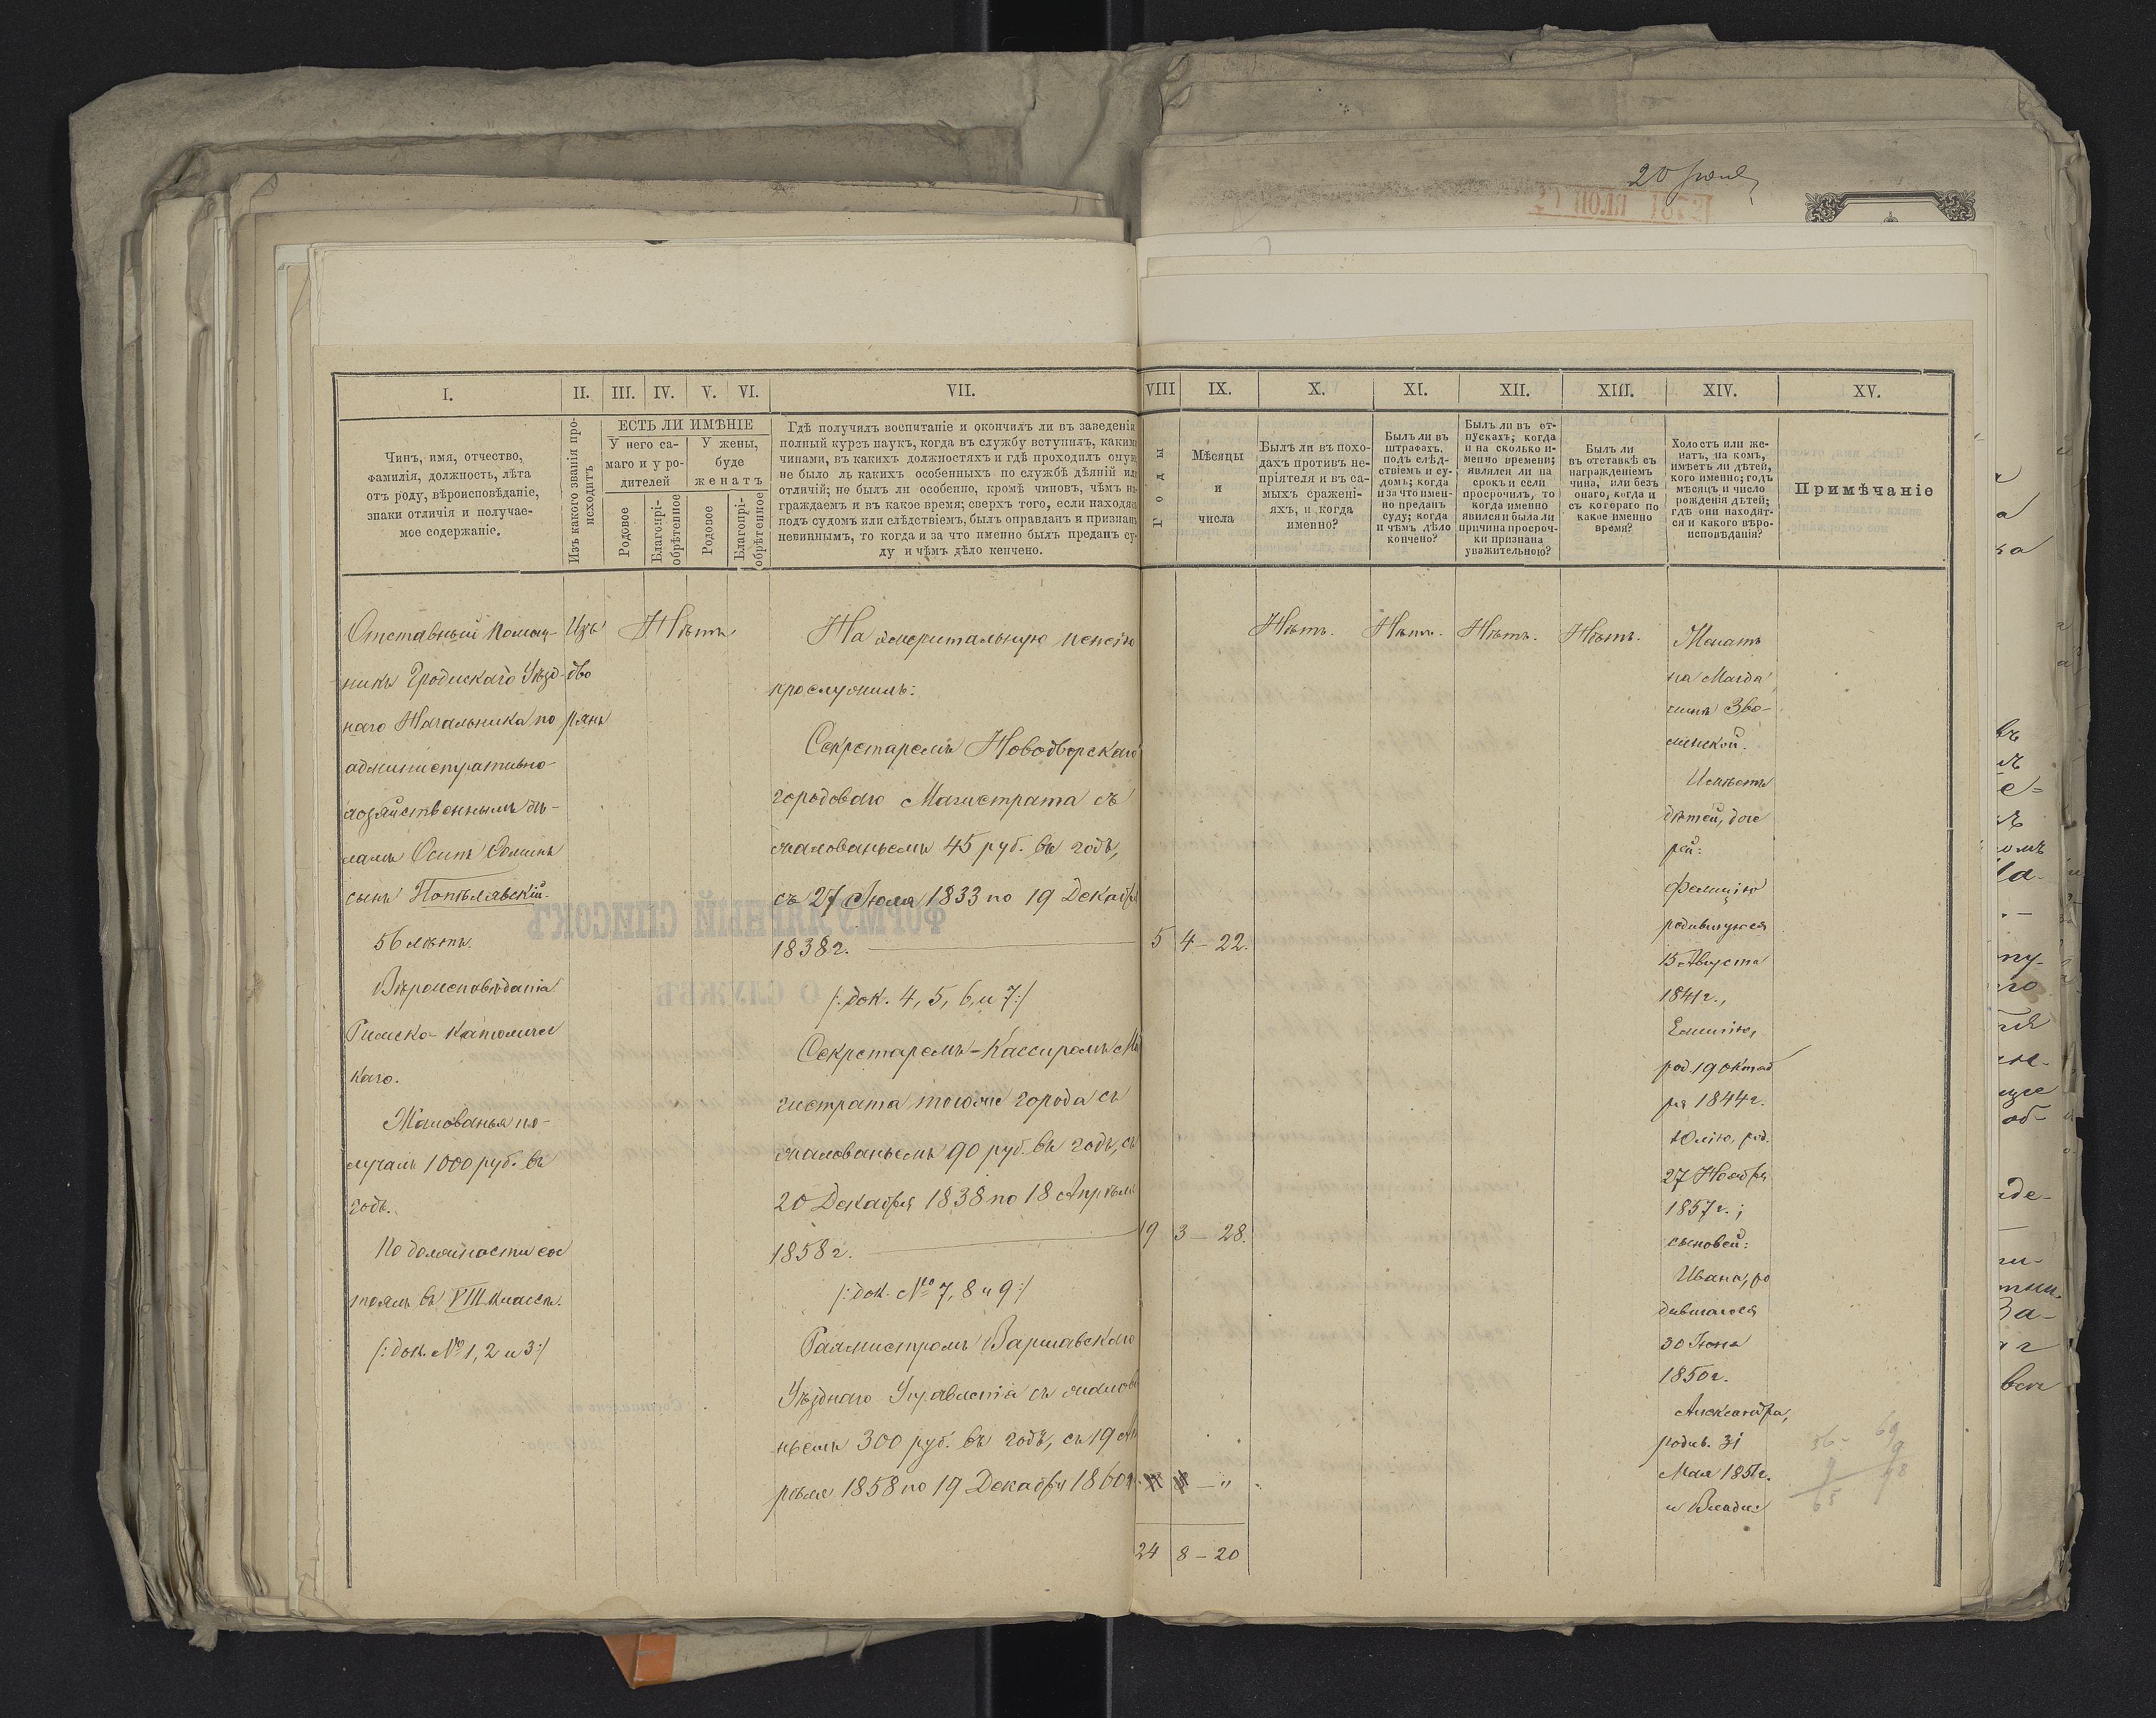 20 Іюня
I.
II.
III.
IV.
V.
VI.
VII.
VIII
IX.
X.
XI.
XII.
XIII.
XIV.
XV.
Чинъ, имя, отчество,
фамилія, должность, лѣта
отъ роду, вѣроисповѣданіе,
знаки отличія и получае-
мое содержаніе.
Изъ какого званія про-
исходитъ
ЕСТЬ ЛИ ИМѢНІЕ
У него са-
маго и у ро-
дителей
У жены,
буде
женатъ
Родовое
Благопрі-
обрѣтенное
Родовое
Благопрі-
обрѣтенное
Гдѣ получилъ воспитаніе и окончилъ ли въ заведеніи
полный курсъ наукъ, когда въ службу вступилъ, какими
чинами, въ какихъ должностяхъ и гдѣ проходилъ оную
не было ль какихъ особенныхъ по службѣ дѣяній или
отличій; не былъ ли особенно, кромѣ чиновъ, чѣмъ на
граждаемъ и въ какое время; сверхъ того, если находясь
подъ судомъ или слѣдствіемъ, былъ оправданъ и признанъ
невиннымъ, то когда и за что именно былъ преданъ су-
ду и чѣмъ дѣло кенчено.
Годы
Мѣсяцы
и
числа
Былъ ли въ похо-
дахъ противъ не-
пріятеля и въ са-
мыхъ сражені-
яхъ, и когда
именно?
Былъ ли въ
штрафахъ,
подъ слѣд-
ствіемъ и су-
домъ; когда
и за что имен-
но преданъ
суду; когда
и чѣмъ дѣло
кончено?
Былъ ли въ от-
пускахъ; когда
и на сколько и-
менно времени;
являлся ли на
срокъ и если
просрочилъ, то
когда именно
явился и была ли
причина просроч-
ки признана
уважительною?
Былъ ли
въ отставкѣ съ
награжденіемъ
чина, или безъ
онаго, когда и
съ котораго по
какое именно
время?
Холостъ или же-
натъ, на комъ,
имѣетъ ли дѣтей,
кого именно; годъ
мѣсяцъ и число
рожденія дѣтей;
гдѣ они находят-
ся и какого вѣро-
исповѣданія?
Примѣчаніе
Отставный Помощ-
никъ Гродискаго Уѣзд-
наго Начальника по
административно-
хозяйственнымъ дѣ-
ламъ Осипъ
сынъ Попѣлявскій.
56 лѣтъ.
Вѣроисповѣданія
Римско-Католичес
каго.
Жалованья по-
лучалъ 1000 руб. въ
годъ.
По должности сос
тоялъ въ VIII классѣ.
/: док. № 1, 2 и 3 :/
Изъ
дво
рянъ
Нѣтъ
На эмеритальную пенсію
прослужилъ:
Секретаремъ Новодворскаго
городоваго Магистрата съ
жалованьемъ 45 руб. въ годъ,
съ 27 Іюля 1833 по 19 Декабря
1838 г.
5 4 – 22.
/: док. 4, 5, 6 и 7 :/
Секретаремъ-Кассиромъ Ма
гистрата тогоже города съ
жалованьемъ 90 руб. въ годъ, съ
20 Декабря 1838 по 18 Апрѣля
1858 г.
19 3 – 28.
/: док. № 7, 8 и 9 :/
Рахмистромъ Варшавскаго
Уѣзднаго Управленія съ жалова
ньемъ 300 руб. въ годъ, съ 19 Ап
рѣля 1858 по 19 Декабря 1860 г.
24 8 – 20
Нѣтъ.
Нѣтъ.
Нѣтъ.
Нѣтъ.
Женатъ
на Магда
линѣ Зво-
линской.
Имѣетъ
дѣтей, доче
рей:
Фелицію
родившуюся
15 Августа
1841 г.,
Емилію,
род. 19 октяб
ря 1844 г.
Юлію, род.
27 Ноября
1857 г.;
сыновей:
Ивана, ро
дившагося
30 Іюня
1850 г.
Александра,
родив. 31
Мая 1851 г.
и Влади
ФОРМУЛЯРНЫЙ СПИСОКЪ
О СЛУЖБѢ